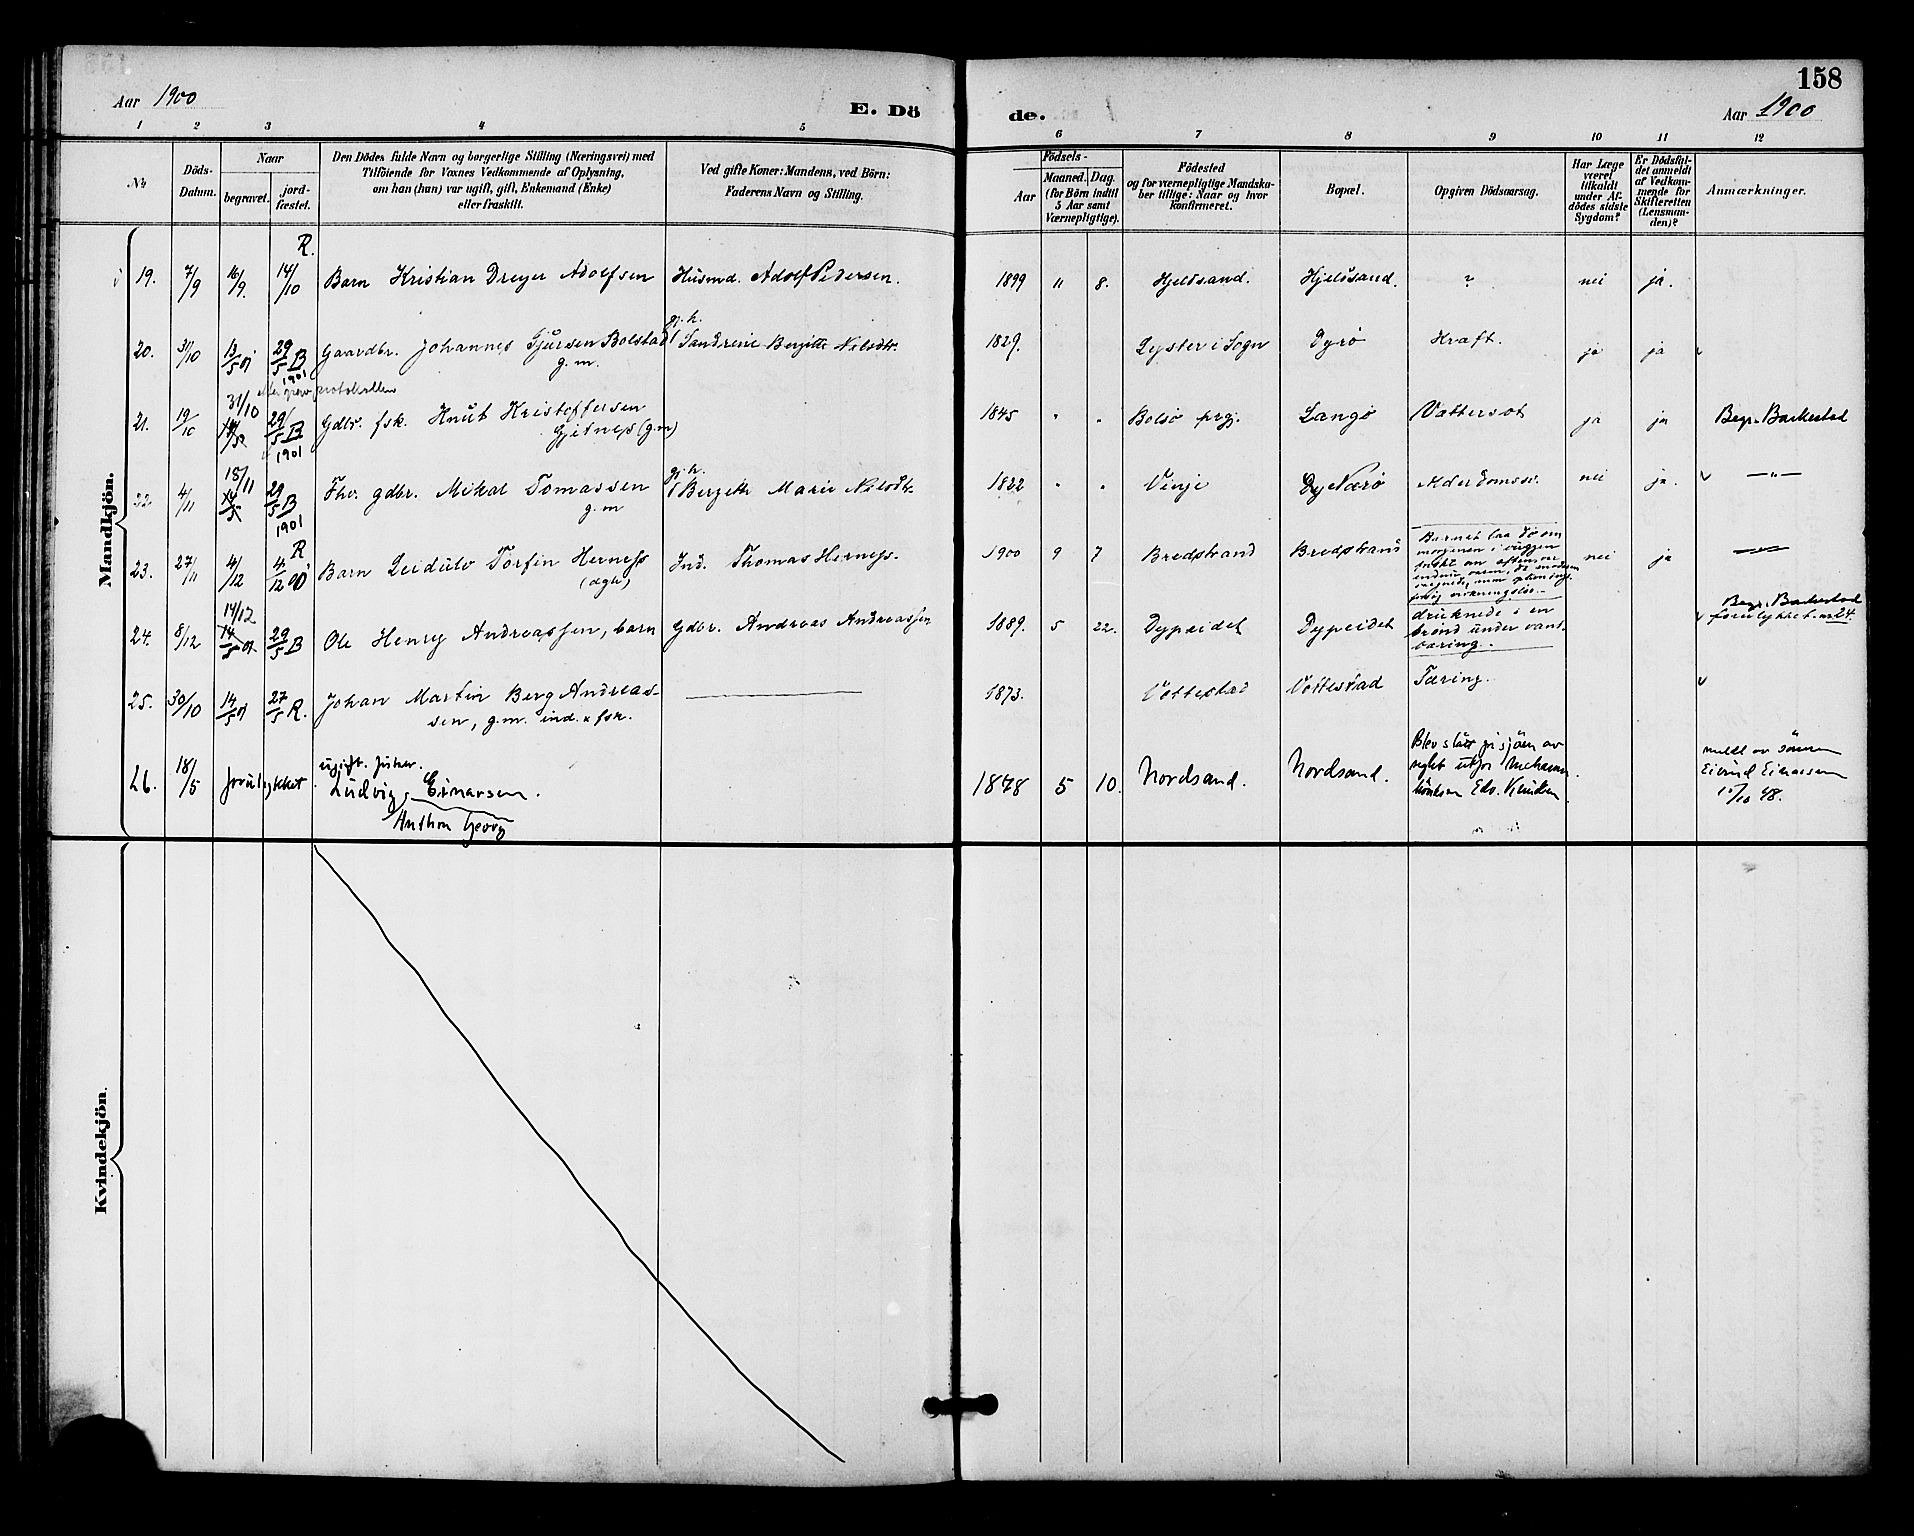 158
Aar 1900
E. Dö
de.
Aar 1900
1 2 3 4 5 6 7 8 9 10 11 12
No.
Döds-
Datum.
Naar
begravet.
jord-
fæstet.
Den Dödes fulde Navn og borgerlige Stilling (Næringsvei) med
Tilföiende for Voxnes Vedkommende af Oplysning,
om han (hun) var ugift, gift, Enkemand (Enke)
eller fraskilt.
Ved gifte Koner: Mandens, ved Börn:
Faderens Navn og Stilling.
Födsels-
Aar
Maaned. Dag.
(for Börn indtil
5 Aar samt
Værnepligtige).
Födested
og for værnepligtige Mandska-
ber tillige: Naar og hvor
konfirmeret.
Bopæl.
Opgiven Dödsaarsag.
Har Læge
været
tilkaldt
under Af-
dödes sidste
Sygdom?
Er Dödsfal-
det anmeldt
af Vedkom-
mende for
Skifteretten
(Lensman-
den)?
Anmærkninger.
Mandkjön.
R.
19. 7/9 16/9. 14/10 Barn Kristian Dreyer Adolfsen Husmd. Adolf Pedersen. 1899 11 8. Hjeldsand. Hjeldsand. ? nei ja.
gj. h.
20. 31/10 13/5 01 29/5 B Gaardbr. Johannes Gjursen Bolstad Sandrine Bergitte Nilsdtr. 1829. Lyster i Sogn Dyrö Kræft. ja ja
1901 g. m.
31/10
21. 19/10 29/5 B Gdbr. fsk. Knut Kristoffersen 1845 " " Bolsö prgj. Langö Vattersot ja ja Begr. Barkestad
1901 Gjitness (g.m)
18/11 gj. h.
22 4/11 14/5 29/5 B Fhv. gdbr. Mikal Tomassen Bergitte Marie Nilsdtr. 1822 " " Vinje Dy Nærö Alderdomssv. nei ja. — " —
1901 g. m
R
23. 27/11 4/12 4/12 00 Barn Leidulv Torfin Herness Ind. Thomas Herness. 1900 9 7 Bredstrand Bredstrand nei ja
(ægte)
Barnet laa dö om
morgenen i vuggen
friskt om aftenen var
14/12
24. 8/12 14/5 01 29/5 B Ole Henry Andreassen, barn Gdbr. Andreas Andreassen 1889. 5 22. Dypeidet Dypeidet
druknede i en
brönd under vand-
bæring.
Begr. Barkestad
forulykket. no 24.
25. 30/10 14/5 01 27/5 R. Johan Martin Berg Andreas- 1873. Vottestad Vottestad Tæring.
sen, g.m. ind. & fsk.
ugift. fisker.
26. 18/5 forulykket Ludvig Einarsen. 1878 5 10. Nordsand. Nordsand.
Anthon Georg
Blev slått på sjöen av
seglet utfor Mehamn
Edv. Knudsen
meldt av sönnen
Eivind Einarsen
48.
Kvindekjön.